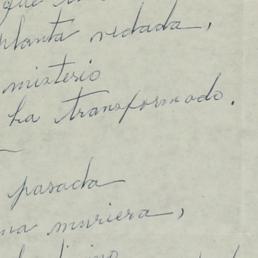 que
planta vedada,
misterio
ha transformado.
pasada
muriera,